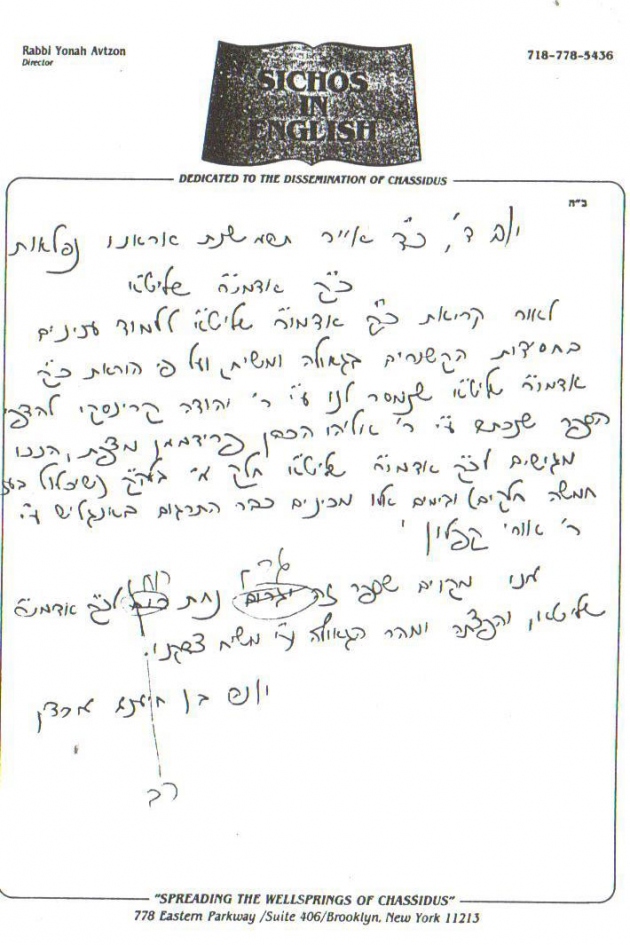 Rabbi Yonah Avtzon
Director
718-778-5436
SICHOS
IN
ENGLISH
DEDICATED TO THE DISSEMINATION OF CHASSIDUS
ב"ה
יום ד', כ"ד אייר תשמ שנת אראנו נפלאות
כ"ק אדמו"ר שליט"א
לאור קריאת כ"ק אדמו"ר שליט"א ללמוד ענינים
בחסידות הקשורים בגאולה ומשיח ועל פי הוראת כ"ק
אדמו"ר שליט"א שנמסר לנו ע"י ר' יהודה קרינסקי
הספר שנכתב ע"י ר' אליהו הכהן פרידמן מצפת, הננו
מגישים לכ"ק אדמו"ר שליט"א חלק א'
חמשה חלקים) ובימים אלו מכינים כבר התרגום באנגליש ע"י
ר' אורי קפלון
אנו מקוים שספר זה נחת רוח לכ"ק אדמו"ר
שליט"א, ומהר הגאולה ע"י משיח צדקנו.
יונה בן חיענא אבצן
רב
"SPREADING THE WELLSPRINGS OF CHASSIDUS"
778 Eastern Parkway /Suite 406/Brooklyn, New York 11213